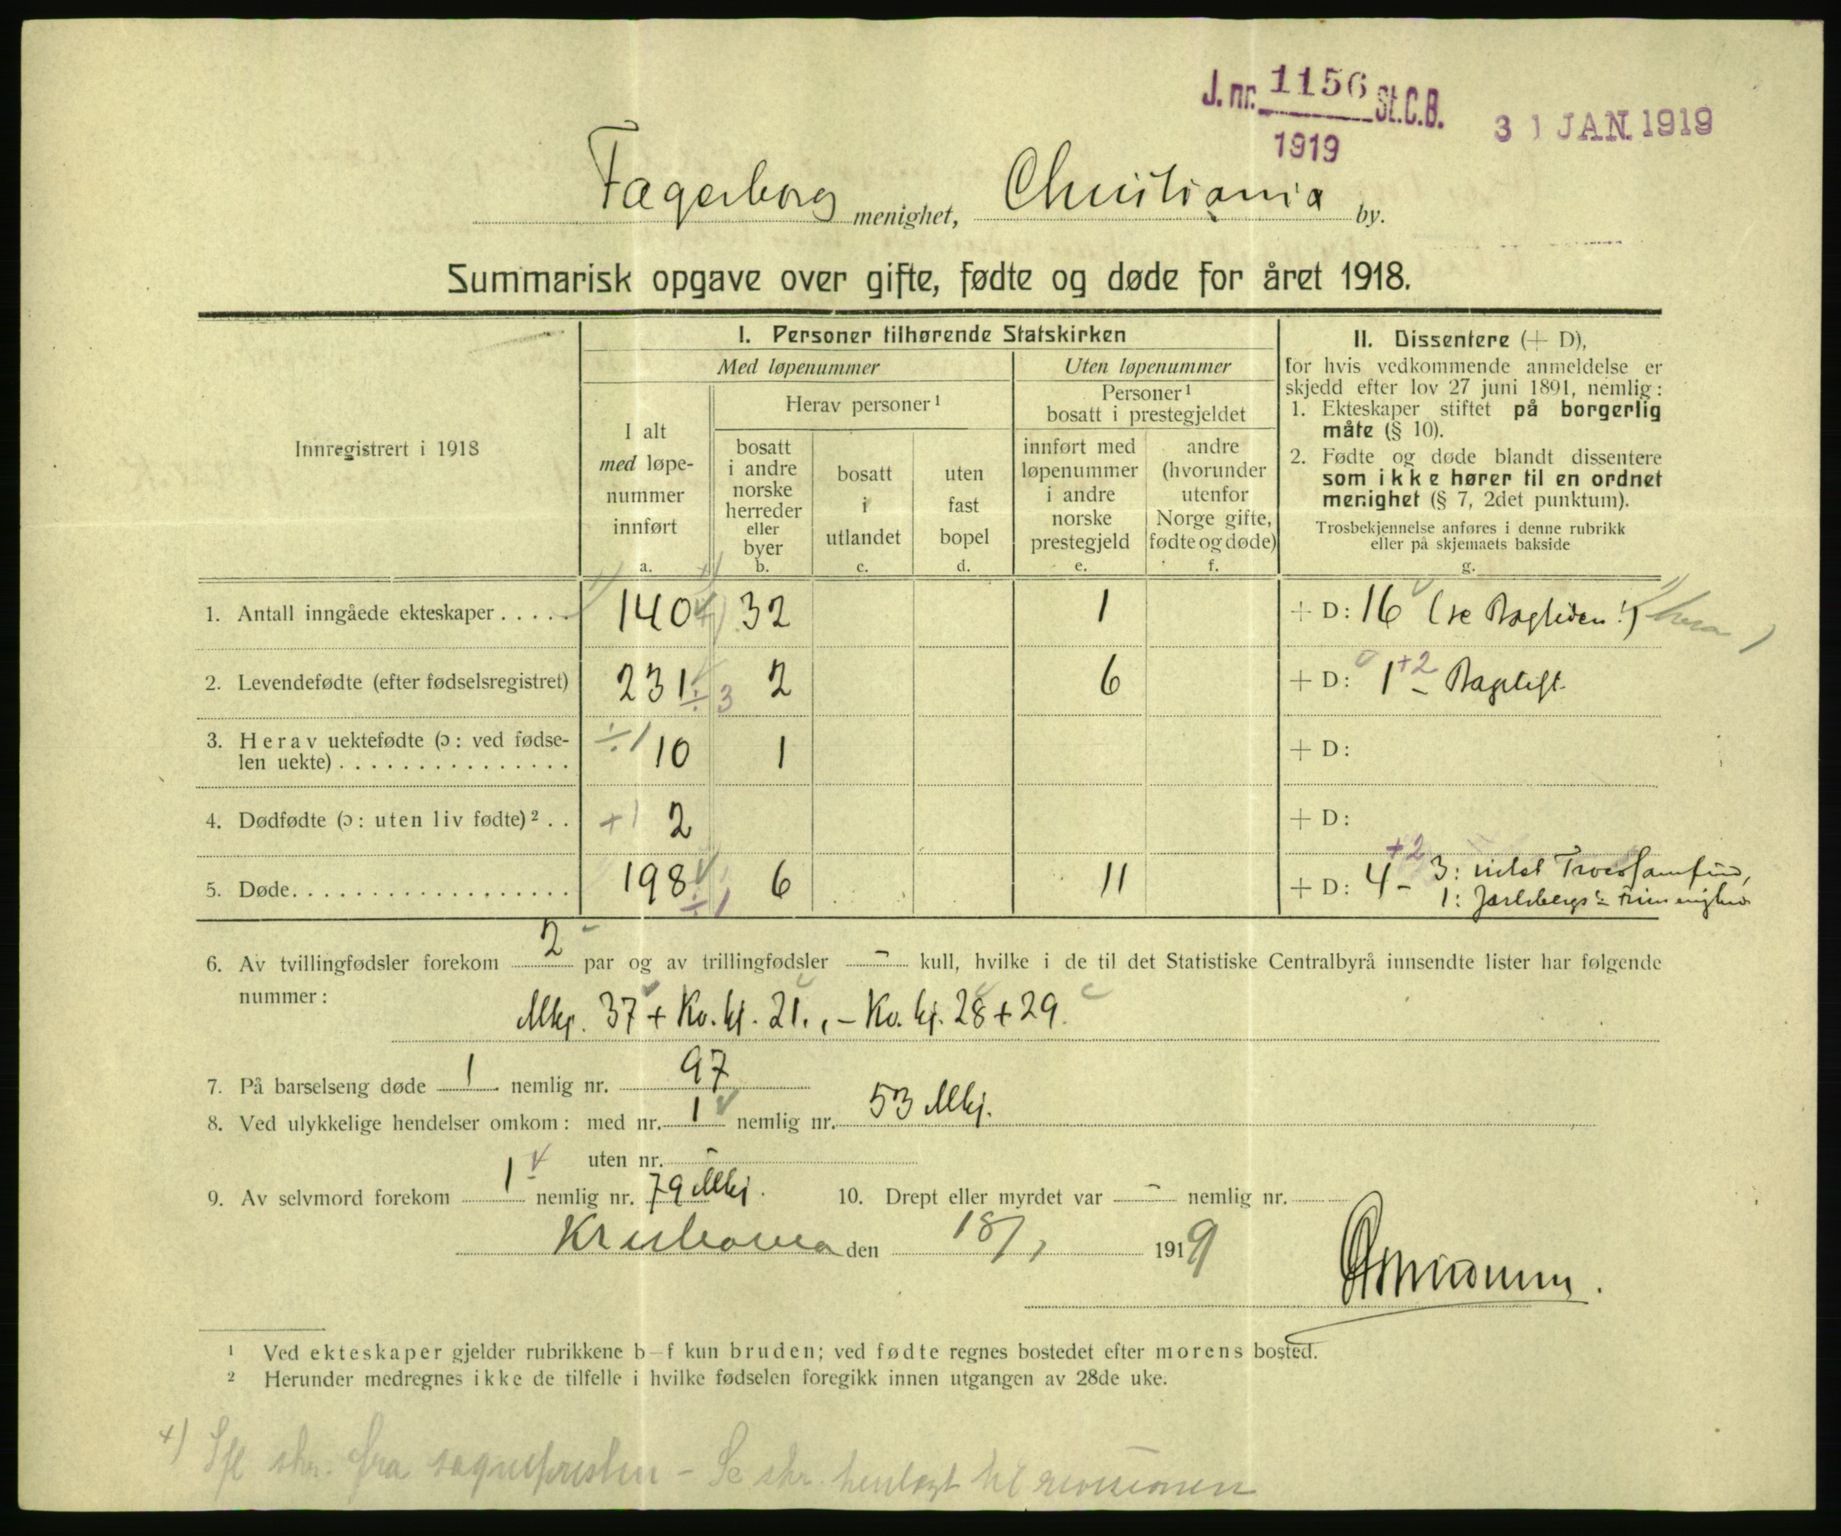 J. nr. 1156 St.C.B.
1919
31 JAN. 1919
Fagerborg menighet, Christiania by.
Summarisk opgave over gifte, fødte og døde for året 1918.
Innregistrert i 1918
I. Personer tilhørende Statskirken
Med løpenummer
Uten løpenummer
Herav personer¹
Personer¹
bosatt i prestegjeldet
I alt
med løpe-
nummer
innført
a.
bosatt
i andre
norske
herreder
eller
byer
b.
bosatt
i
utlandet
c.
uten
fast
bopel
d.
innført med
løpenummer
i andre
norske
prestegjeld
e.
andre
(hvorunder
utenfor
Norge gifte,
fødte og døde)
f.
II. Dissentere (+ D),
for hvis vedkommende anmeldelse er
skjedd efter lov 27 juni 1891, nemlig:
1. Ekteskaper stiftet på borgerlig
måte (§ 10).
2. Fødte og døde blandt dissentere
som ikke hører til en ordnet
menighet (§ 7, 2det punktum).
Trosbekjennelse anføres i denne rubrikk
eller på skjemaets bakside
g.
1. Antall inngåede ekteskaper . . . . . 140 32 1 + D: 16 (se Bagsiden!)
2. Levendefødte (efter fødselsregistret) 231 ÷ 3 2 6 + D: 1 +2 –
3. Herav uektefødte (ɔ: ved fødse-
len uekte) . . . . . . . . . . . . . . . ÷1 10 1 + D:
4. Dødfødte (ɔ: uten liv fødte)² . . +1 2 + D:
5. Døde. . . . . . . . . . . . . . . . . . 198 ÷1 6 11 + D: 4 +2 – 3: Trossamfund,
1: Jarlsbergs
6. Av tvillingfødsler forekom 2 par og av trillingfødsler – kull, hvilke i de til det Statistiske Centralbyrå innsendte lister har følgende
nummer:
Mkj. 37 + Kv. kj. 21., – Kv. kj. 28 + 29.
7. På barselseng døde 1 nemlig nr. 97
8. Ved ulykkelige hendelser omkom: med nr. 1 nemlig nr. 53 Mkj.
uten nr. –
9. Av selvmord forekom 1 nemlig nr. 79 Mkj. 10. Drept eller myrdet var – nemlig nr.
Kristiania den 18/1 1919
¹ Ved ekteskaper gjelder rubrikkene b–f kun bruden; ved fødte regnes bostedet efter morens bosted.
² Herunder medregnes ikke de tilfelle i hvilke fødselen foregikk innen utgangen av 28de uke.
+) Ifl skr. fra sognepresten – Se skr. henlagt til revisionen